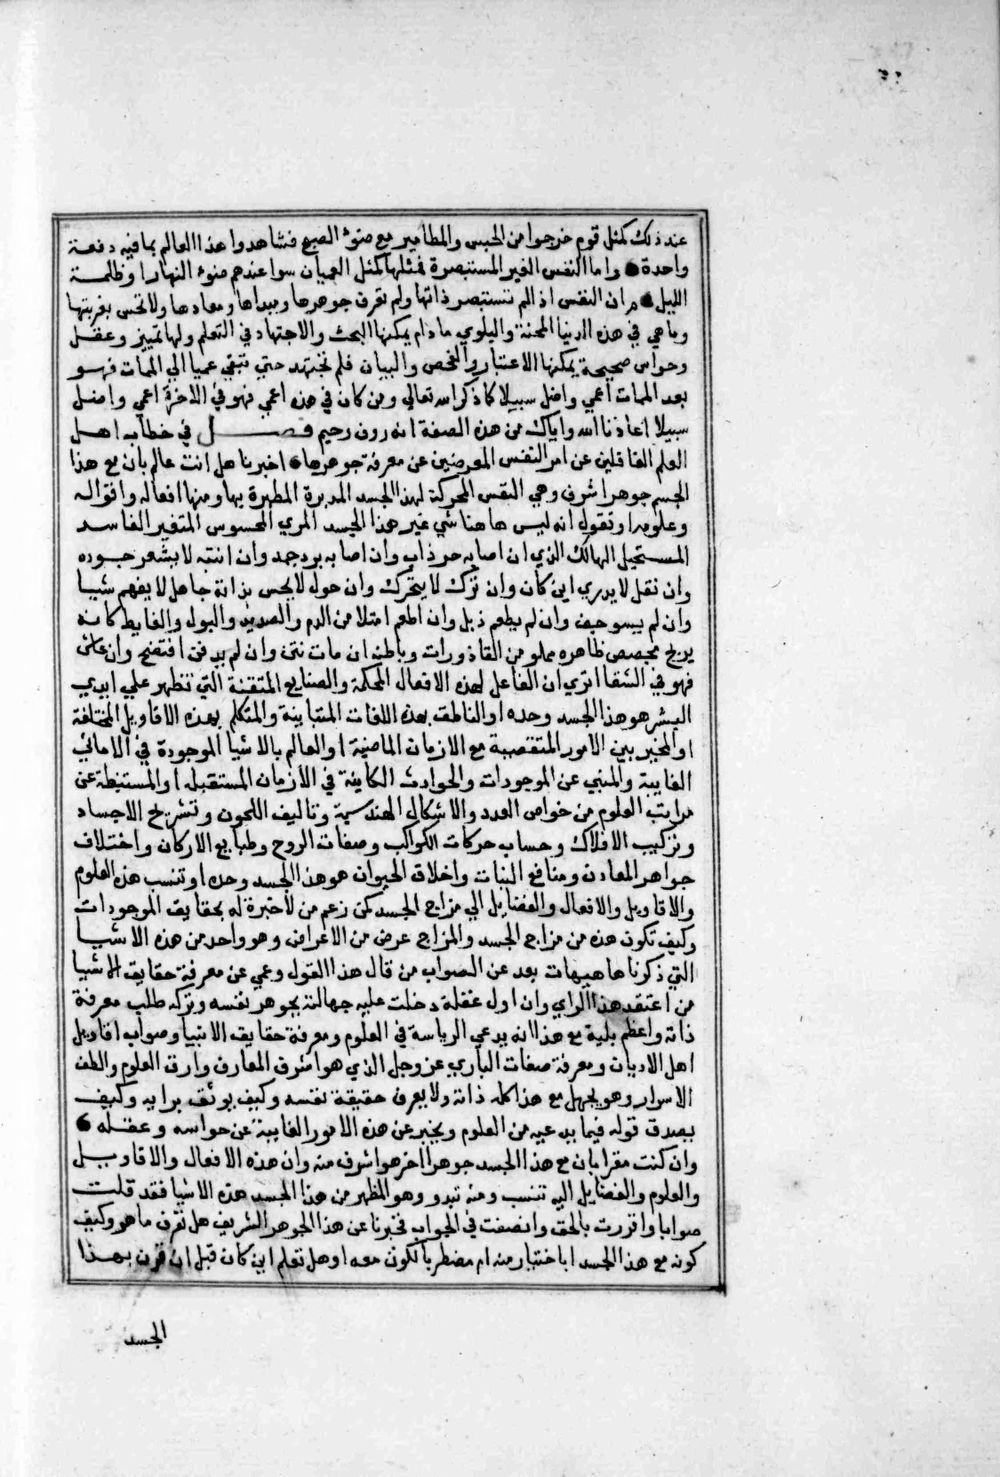 عند ذلك كمثل قوم خرجوا من الحبس والمطامير مع ضوء الصبح فشاهدوا هذا العالم بما فيه دفعة
واحدة واما النفس الغير المستبصرة فمثلها كمثل العميان سوا عندهم ضوء النهار او ظلمة
الليل ثم ان النفس اذا لم تستبصر ذاتها ولم تعرف جوهرها ومبداها ومعادها ولا تحس بغربتها
وما هي في هذه الدنيا المحنة والبلوي مادام يمكنها البحث والاجتهاد في التعلم ولها تمييز وعقل
وحواس صحيحة يمكنها الاعتبار والفحص والبيان فلم تجتهد حتي تبقي عميا الي الممات فهو
بعد الممات اعمي واضل سبيلا كما ذكر الله تعالي ومن كان في هذه اعمي فهو في الاخرة اعمي واضل
سبيلا اعاذنا الله واياك من هذه الصفة انه رون رحيم فصل في خطابه اهل
العلم الغافلين عن امر النفس المعرضين عن معرفة جوهرها اخبرنا هل انت عالم بان مع هذا
الجسم جوهرا اشرف وهي النفس المحركة لهذا الجسد المدبرة المظهرة بها ومنها افعاله واقواله
وعلومه او تقول انه ليس هاهنا شي غير هذا الجسد المري المحسوس المتغير الفاسد
المستحيل الهالك الذي ان اصابه حر ذاب وان اصابه برد جمد وان انتبه لا يشعر حوده
وان نقل لا يدري اين كان وان ترك لا يتحرك وان حول لا يحس بذاته جاهل لا يفهم شيا
وان لم يسو جيف وان لم يطعم ذبل وان اطعم امتلا من الدم والصديد والبول والغايط كانه
برج مجصص ظاهره مملو من القاذورات وباطنه ان مات نتن وان لم يدفن افتضح وان عاش
فهو في الشقا اتري ان الفاعل لهذه الافعال المحكمة والصنايع المتقنة التي تظهر علي ايدي
البشر هو هذا الجسد وحده او الناطق بهذه اللغات المتباينة والمتكلم بهذه الاقاويل المختلفة
او المخبر بين الامور المتقصية مع الازمان الماضية او العالم بالاشيا الموجودة في الاماكن
الغايبة والمنبي عن الموجودات والحوادث الكاينة في الازمان المستقبله او المستنبطة عن
مراتب العلوم من خواص العدد والاشكال الهندسية وتاليف اللحون وتشريح الاجساد
وتركيب الافلاك وحساب حركات الكواكب وصفات الروح وطبايع الاركان واختلاف
جواهر المعادن ومنافع النبات واخلاق الحيوان هو هذا الجسد وحده او تنسب هذه العلوم
والاقاويل والافعال والفضايل الي مزاج الجسد كمن زعم من لا خبرة له بحقايق الموجودات
وكيف تكون هذه من مزاج الجسد والمزاج عرض من الاعراض وهو واحد من هذه الاشيا
التي ذكرناها هيهات بعد عن الصواب من قال هذا القول وعمي عن معرفة حقايق الاشيا
من اعتقد هذا الراي وان اول غفلة دخلت عليه جهالته بجوهر نفسه وتركه طلب معرفة
ذاته واعظم بلية مع هذا انه يدعي الرياسة في العلوم ومعرفة حقايق الانبيا وصواب اقاويل
اهل الاديان ومعرفة صفات الباري عز وجل الذي هو اشرف المعارف وارق العلوم والطف
الاسرار وهو يجهل مع هذا كله ذاته ولا يعرف حقيقة نفسه وكيف يوثق برايه وكيف
يصدق قوله فيما يدعيه من العلوم ويخبر عن هذه الامور الغايبة عن حواسه وعقله
وان كنت مقرا بان مع هذا الجسد جوهرا اخر هو اشرف منه وان هذه الافعال والاقاويل
والعلوم والفضايل اليه تنسب ومنه تبدو وهو المظهر من هذا الجسد هذه الاشيا فقد قلت
صوابا واقررت بالحق وانصفت في الجواب فخبرنا عن هذا الجوهر الشريف هل تعرف ما هو وكيف
كونه مع هذا الجسد اباختيار منه ام مضطر بالكون معه او هل تعلم اين كان قبل ان قرن بهذا
الجسد